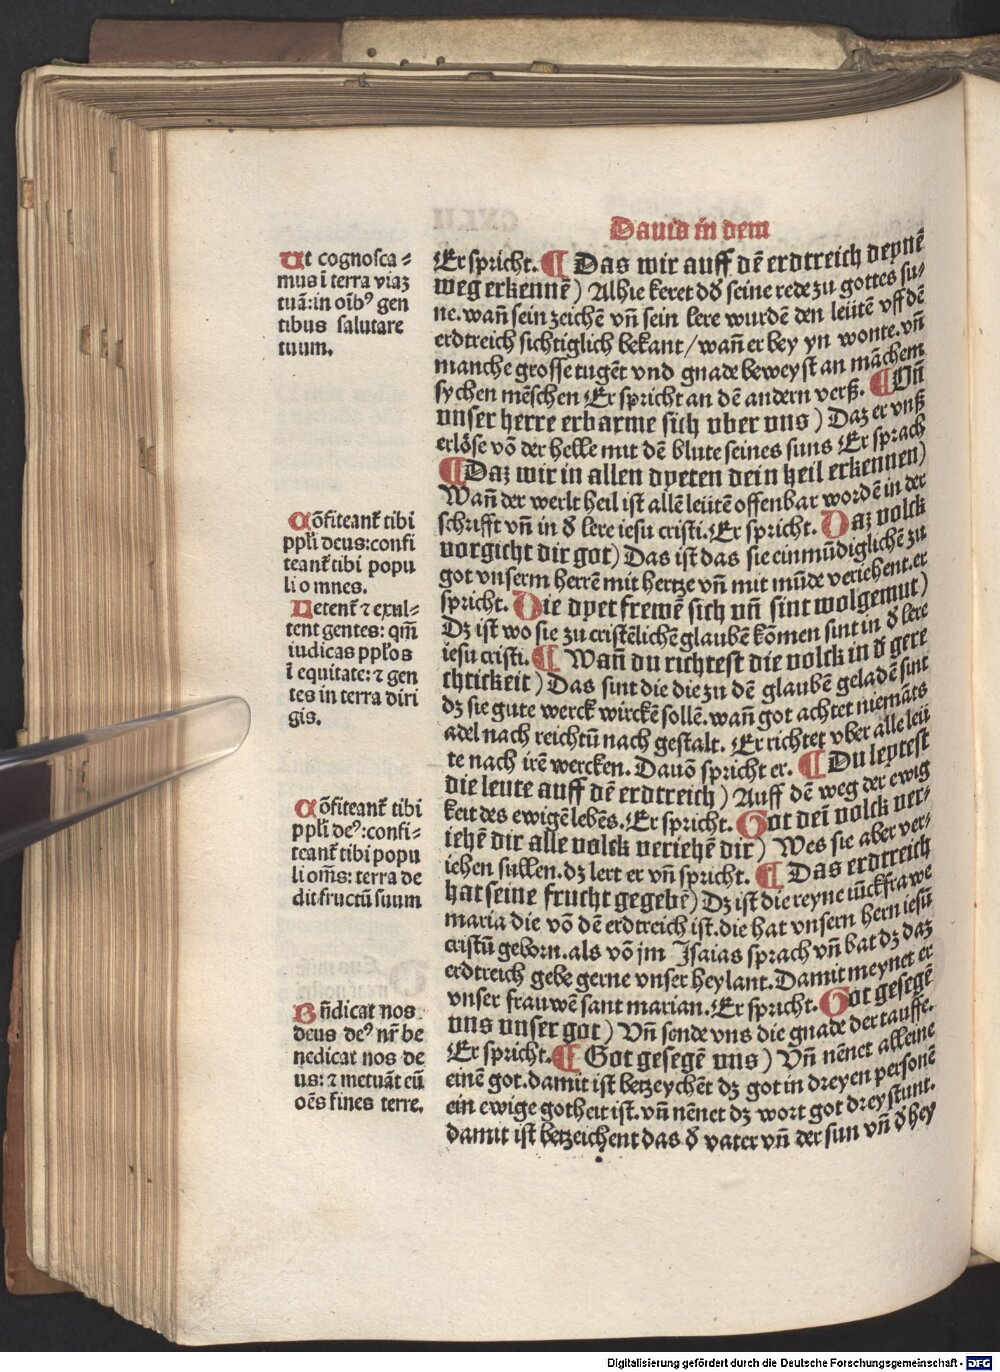 Dauid in dem
Ut cognosca⸗
mus ī terra viaz
tuā: in oībꝰ gen
tibus salutare
tuum.
Cōfiteant᷑ tibi
ppl̄i deus: confi
teant᷑ tibi popu
li omnes.
Letent᷑ ⁊ exul⸗
tent gentes: qm̄
iudicas ppl̄os
ī equitate: ⁊ gen
tes in terra diri
gis.
Cōfiteant᷑ tibi
ppl̄i deꝰ: confi⸗
teant᷑ tibi popu
li om̄s: terra de
dit fructū suum
Bn̄dicat nos
deus deꝰ nr̄ be
nedicat nos de
us: ⁊ metuāt eū
oēs fines terre.
Er spricht. ¶ Das wir auff dē erdtreich deynē
weg erkennē) Alhie keret dð seine rede zu gottes su⸗
ne. wan̄ sein zeichē vn̄ sein lere wurdē den leütē vff dē
erdtreich sichtiglich bekant / wan̄ er bey yn wonte. vn̄
manche grosse tugēt vnd gnade beweyst an māchem
sychen mēschen Er spricht an dē andern verß. ¶ Vn̄
vnser herre erbarme sich vber vns) Daz er vnß
erlöse vō der helle mit dē blute seines suns Er sprach
¶ Daz wir in allen dyeten dein heil erkennen)
Wan̄ der werlt heil ist allē leütē offenbar wordē in der
schrifft vn̄ in ð lere iesu cristi. Er spricht. Daz volck
vorgicht dir got) Das ist das sie einmūdiglichē zu
got vnserm herrē mit hertze vn̄ mit mūde veriehent. er
spricht. Die dyet frewē sich vn̄ sint wolgemut)
Dz ist wo sie zu cristēlichē glaubē kōmen sint in ð lere
iesu cristi. ¶ Wan̄ du richtest die volck in ð gere
chtickeit) Das sint die die zu dē glaubē geladē sint
dz sie gute werck wirckē sollē. wan̄ got achtet niemāts
adel nach reichtū nach gestalt. Er richtet vber alle leü
te nach irē wercken. Dauō spricht er. ¶ Du leytest
die leute auff dē erdtreich) Auff dē weg der ewig
keit des ewigē lebēs. Er spricht. Got dei volck ver⸗
iehē dir alle volck veriehē dir) Wes sie aber ver⸗
iehen sullen. dz lert er vn̄ spricht. ¶ Das erdtreich
hat seine frucht gegebē) Dz ist die reyne iūckfrawe
maria die vō dē erdtreich ist. die hat vnsern hern iesū
cristū geborn. als vō jm Isaias sprach vn̄ bat dz daz
erdtreich gebe gerne vnser heylant. Damit meynet er
vnser frauwē sant marian. Er spricht. Got gesegē
vns vnser got) Vn̄ sende vns die gnade der tauffe.
Er spricht. ¶ Got gesegē vns) Vn̄ nēnet alleine
einē got. damit ist betzeychēt dz got in dreyen personē
ein ewige gotheit ist. vn̄ nēnet dz wort got drey stunt.
damit ist betzeichent das ð vater vn̄ der sun vn̄ ð hey
Digitalisierung gefördert durch die Deutsche Forschungsgemeinschaft - DFG